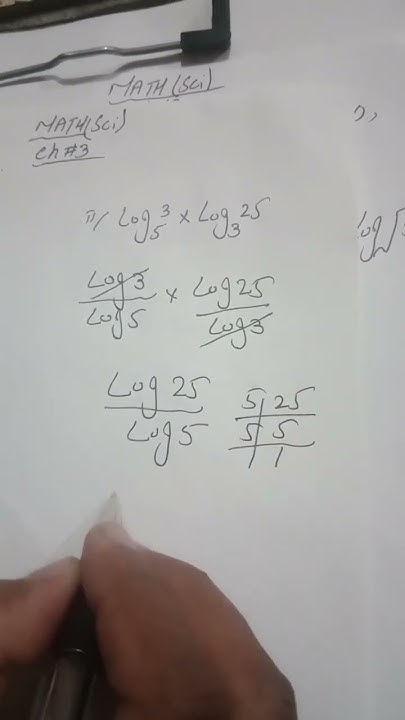 MATH(Sci)
MATH(Sci)
Ch #3
ii/ Log₅3 × Log₃25
Log3/Log5 × Log25/Log3
Log25/Log5
5|25
5|5
|1